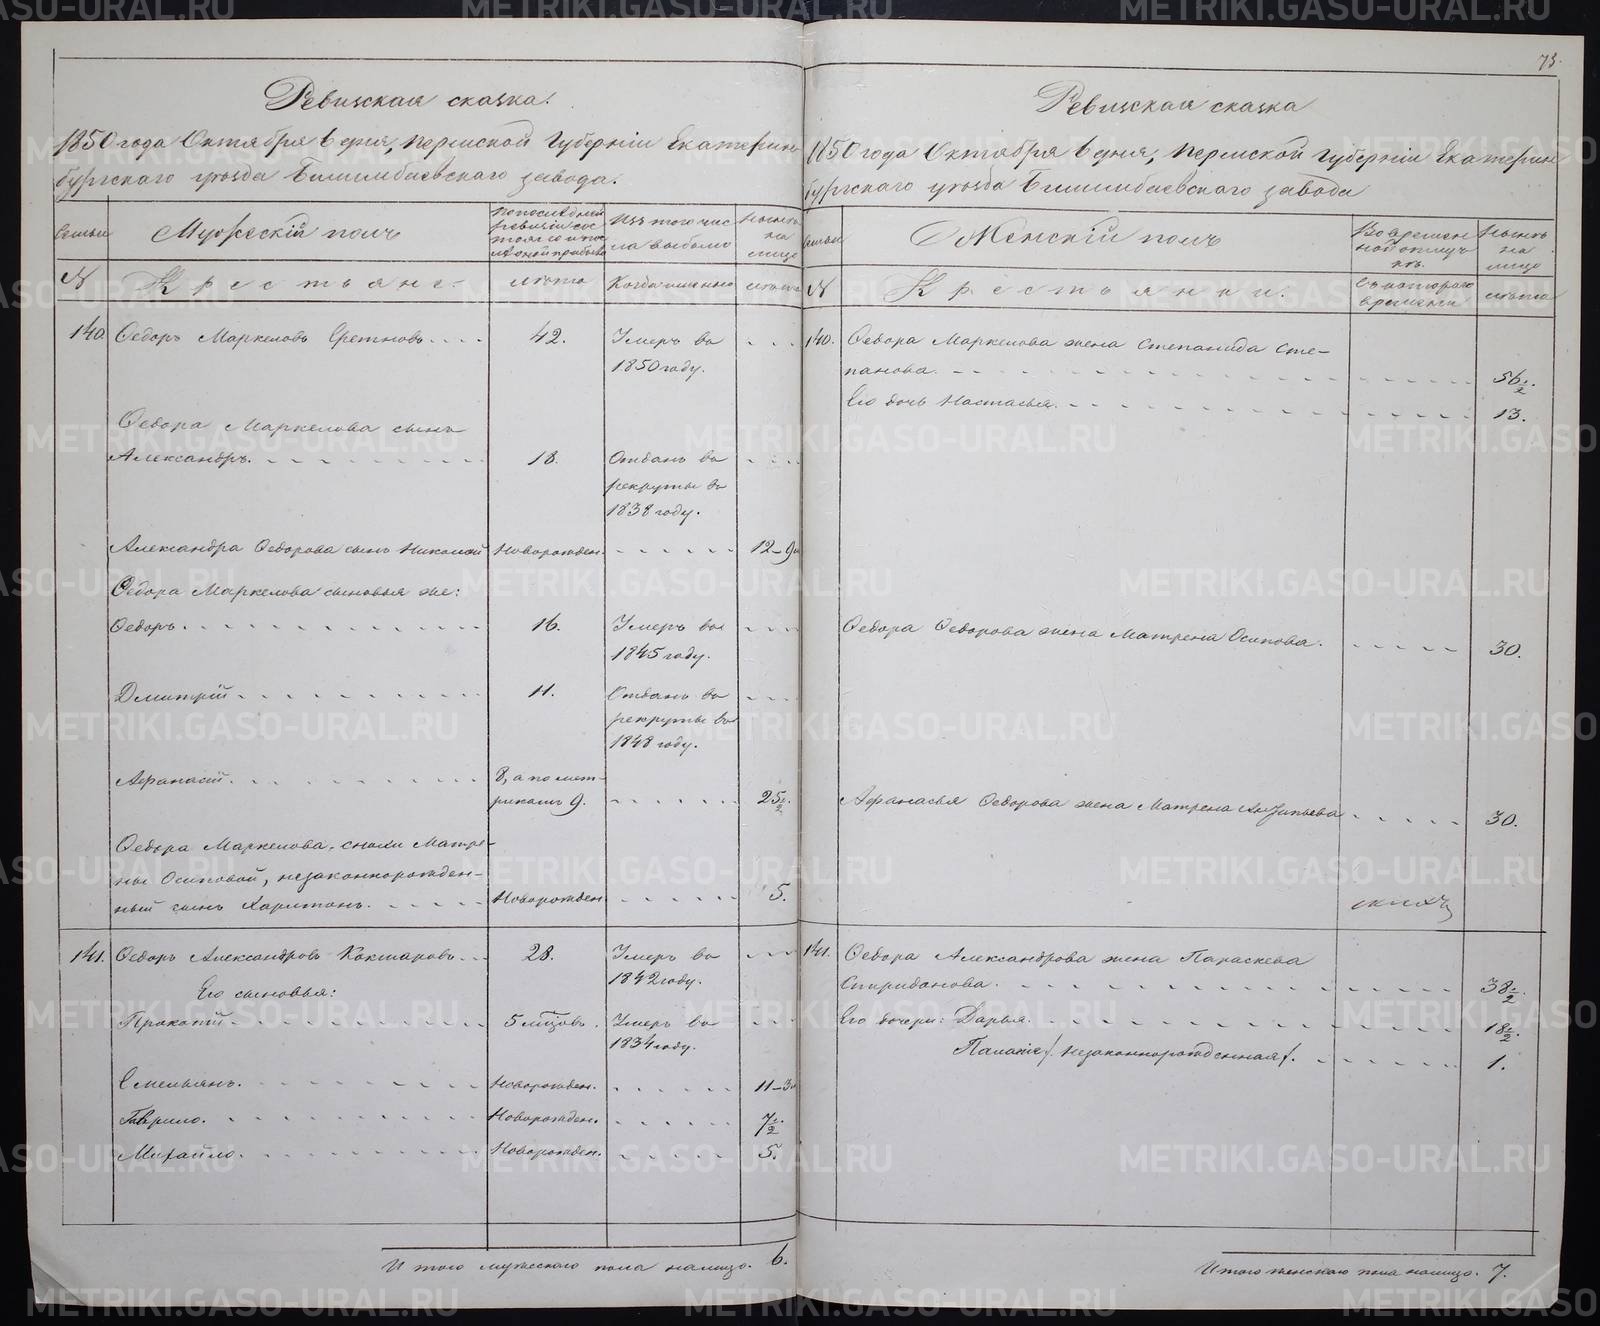 73.
Ревизская сказка.
1850 года Октября 6 дня, Пермской Губерніи Екатерин-
бургскаго уѣзда Билимбаевскаго завода.
Семьи
Мужескій полъ
По последней ревизіи состояло и после оной прибыло
Изъ того числа выбыло
Нынѣ на лицо
№
Крестьяне.
лѣта
Когда именно
лѣта
140. Ѳедоръ Маркеловъ 42. Умеръ въ
1850 году.
Ѳедора Маркелова сынъ
Александръ. 18. Отданъ въ
рекруты въ
1838 году.
Александра Ѳедорова сынъ Николай Новорожден. 12-9м
Ѳедора Маркелова сыновья же:
Ѳедоръ. 16. Умеръ въ
1845 году.
Дмитрій 11. Отданъ въ
рекруты въ
1848 году.
Афанасій. 8, а по мет-
рикамъ 9. 25½.
Ѳедора Маркелова, снохи Матре-
ны Осиповой, незаконнорожден-
ный сынъ Харитонъ. Новорожден. 5.
141. Ѳедоръ Александровъ Кокшаровъ 28. Умеръ въ
1842 году.
Его сыновья:
Прокопій 5 мѣсяцовъ. Умеръ въ
1834 году.
Емельянъ. Новорожден. 11-3м
Гаврило. Новорожден. 7½.
Михайло. Новорожден. 5.
Итого мужескаго пола налицо. 6.
Ревизская сказка
1850 года Октября 6 дня, Пермской Губерніи Екатерин
бургскаго уѣзда Билимбаевскаго завода
Семьи
Женскій полъ
Во времен
ной отлуч
кѣ.
Нынѣ
на
лицо
№
Крестьянки.
Съ котораго
времени
лѣта
140. Ѳедора Маркелова жена Степанида Сте-
панова. 56½.
Его дочь Настасья. 13.
Ѳедора Ѳедорова жена Матрена Осипова. 30.
Афанасья Ѳедорова жена Матрена Антипьева 30.
141. Ѳедора Александрова жена Параскева
Спиридонова. 38½.
Его дочери: Дарья. 18½.
Палагія /незаконнорожденная/. 1.
Итого женскаго пола налицо. 7.
METRIKI.GASO-URAL.RU